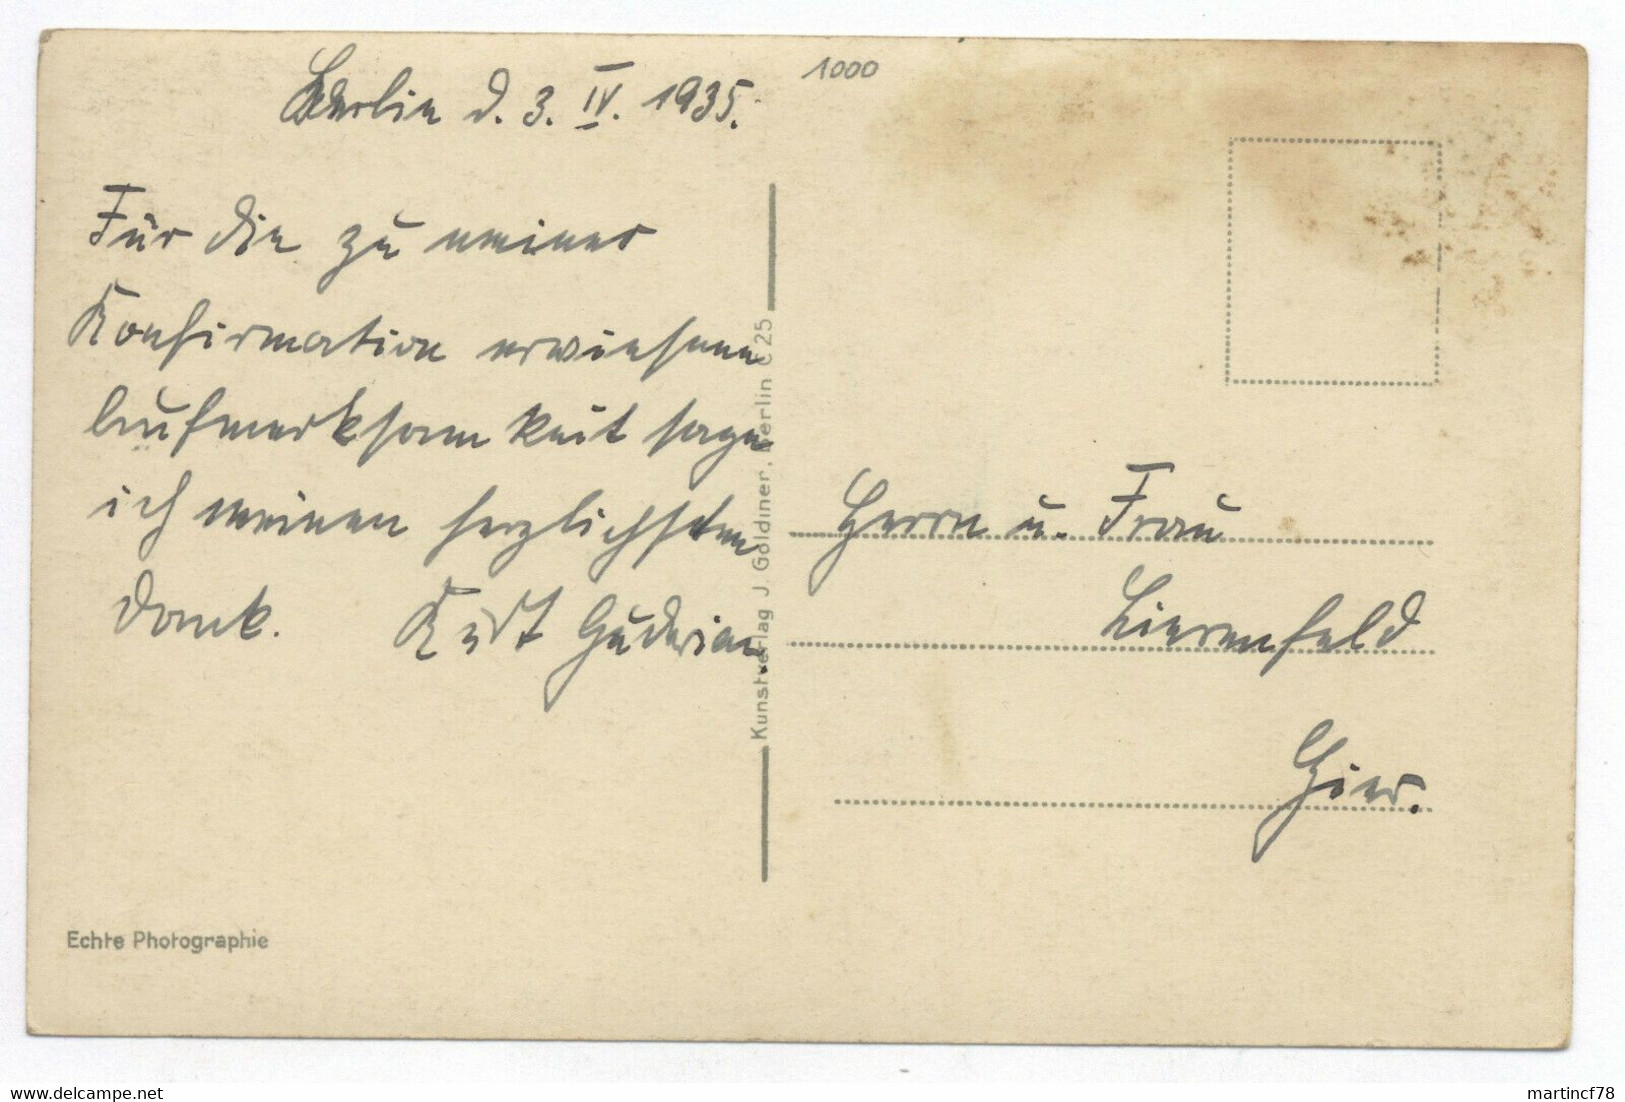 Berlin d. 3. IV. 1935.
1000
Für die zu meiner
Konfirmation erwiesene
Aufmerksamkeit sage
ich meinen herzlichsten
Dank. Kurt Guderian.
Kunstverlag J. Goldiner, Berlin C 25
Herrn u. Frau
Lierenfeld
Hier.
Echte Photographie
martincf78